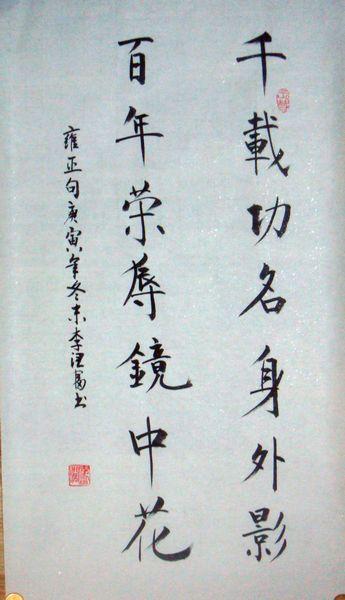 千載功名身外影
百年荣辱鏡中花
雍正句庚寅年冬末李